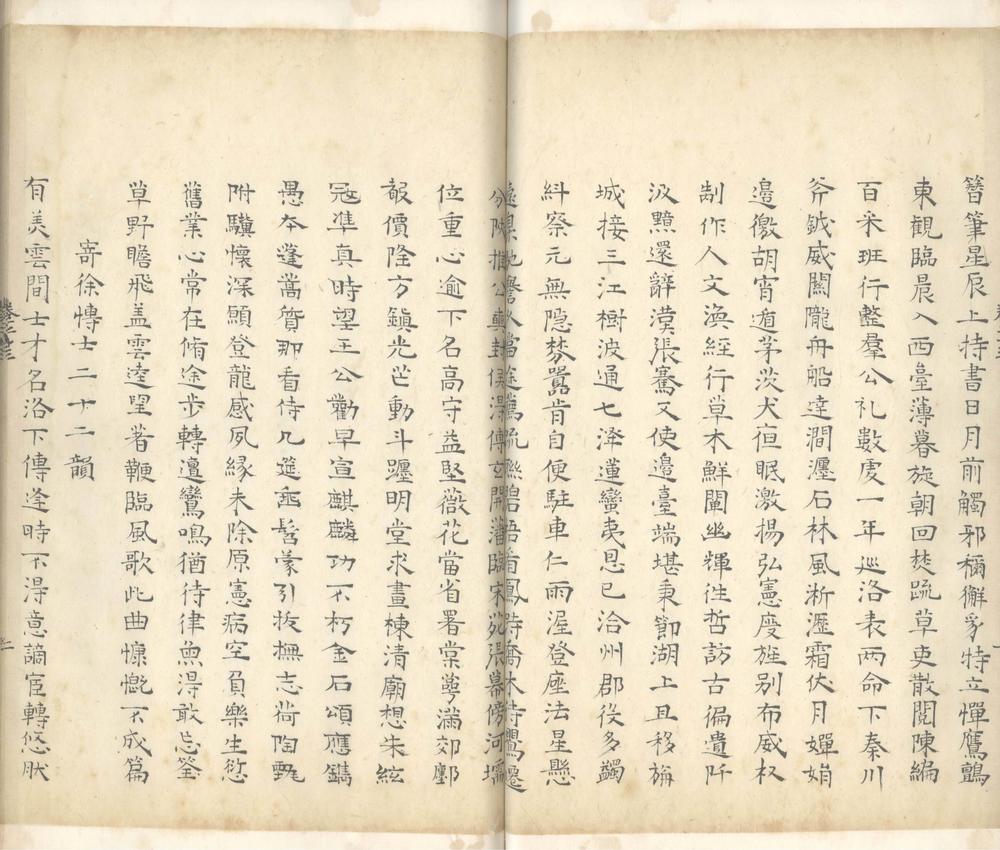 簪筆星辰上持書日月前觸邪稱獬豸特立憚鷹鸇
東觀臨晨入西臺薄暮旋朝回焚疏草吏散閱陳編
百寀班行整羣公礼數虔一年巡洛表兩命下秦川
斧鉞威關隴舟船達澗瀍石林風淅瀝霜伏月嬋娟
邊徼胡宵遁茅茨犬夜眠激揚弘憲度旌别布威权
制作人文渙經行草木鮮闡幽輝徃哲訪古徧遺阡
汲黯還辭漢張騫又使邊臺端堪秉節湖上且移旃
城接三江樹波通七澤蓮蠻夷恩已洽州郡役多蠲
糾察元無隐棼嚚肯自便駐車仁雨渥登座法星懸
鳳待喬木待鶯遷
分陝推公輿封侯淂傅玄開藩臨宋苑張幕傍河壖
位重心逾下名高守益堅薇花當省署棠蕚滿郊鄽
報價隆方鎮光芒動斗躔明堂求畫棟清廟想朱絃
冠準真時望王公勸早宣麒麟功不朽金石頌應鐫
愚本蓬蒿質那看侍几筵垂髫蒙引拔撫志荷陶甄
附驥懷深願登龍感夙緣未除原憲病空負樂生愆
舊業心常在脩途步轉邅鸞鳴猶待律魚淂敢忘筌
草野瞻飛盖雲逵望著鞭臨風歌此曲慷慨不成篇
寄徐愽士二十二韻
有美雲間士才名洛下傳逢時不淂意謫宦轉悠肰